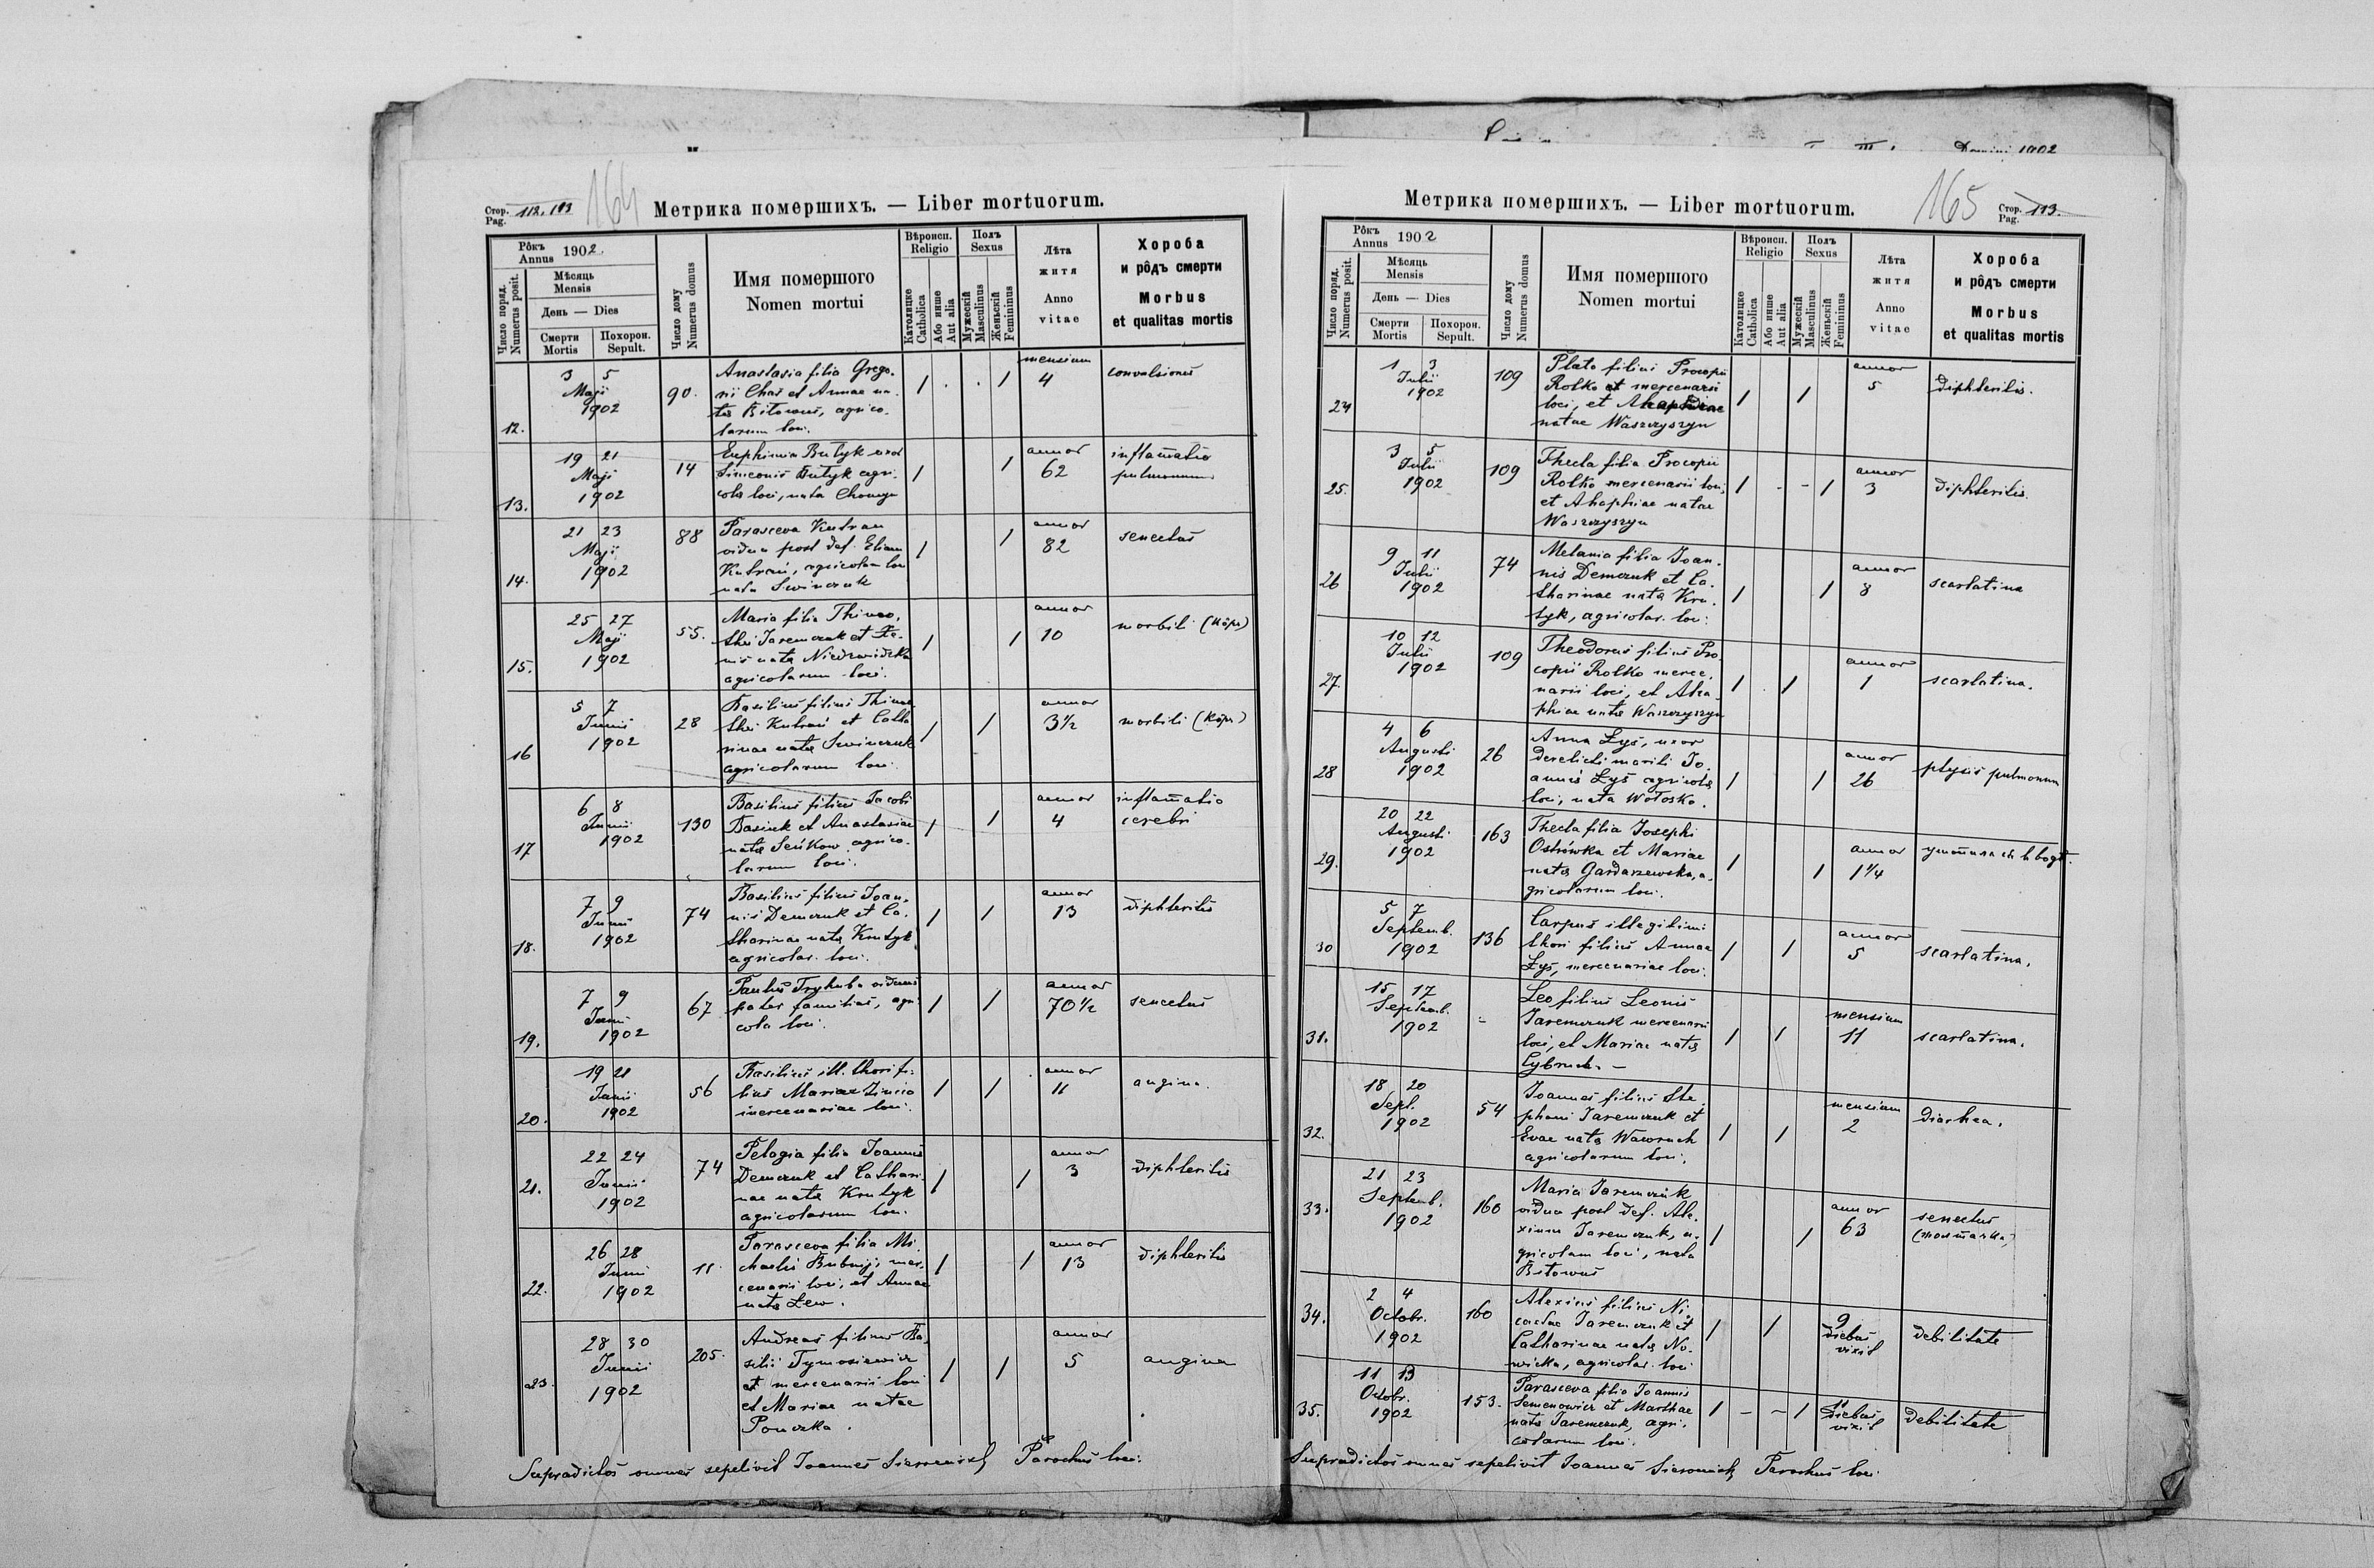 Domini 1902
Стор.
Pag. 112. 113
164
Метрика померших. — Liber mortuorum.
Рôкъ
Annus 1902.
Мѣсяць
Mensis
День — Dies
Смерти
Mortis
Похорон.
Sepult.
Число поряд.
Numerus posit.
Число дому
Numerus domus
Имя помершого
Nomen mortui
Вѣроисп.
Religio
Католицке
Catholica
Або инше
Aut alia
Полъ
Sexus
Мужескій
Masculinus
Женьскій
Femininus
Лѣта
житя
Anno
vitae
Хороба
и рôдъ смерти
Morbus
et qualitas mortis
12.
3 5
Maji
1902
90.
Anastasia filia Grego-
rii Chaś et Annae na-
tae Bitowuś, agrico-
larum loci.
1 . . 1
mensium
4
convulsiones
13.
19 21
Maji
1902
14
Euphimia Butyk uxor
Simeonis Butyk agri-
colae loci, nata
1 1
annor
62
inflamatio
pulmonum
14.
21 23
Maji
1902
88
Parasceva Kutran
vidua post def. Eliam
agricolam loci
nata Swinczuk
1 1
annor
82
senectus
15.
25 27
Maji
1902
55.
Maria filia Thimo-
thei Jaremczuk et Xe-
niae natae Niedzwidzka
agricolarum loci.
1 1
annor
10
morbili (Кôръ)
16
5 7
Junii
1902
28
Basilius filius Thimo-
thei et Catha-
rinae natae Swinczuk
agricolarum loci.
1 1
annor
3½
morbili (Кôръ)
17
6 8
Junii
1902
130
Basilius filius Jacobi
Basiuk et Anastasiae
natae Seńkow agrico-
larum loci.
1 1
annor
4
inflamatio
cerebri
18.
7 9
Junii
1902
74
Basilius filius Joan-
nis Demczuk et Ca-
tharinae natae Krutyk
agricolar. loci.
1 1
annor
13
diphteritis
19.
7 9
Junii
1902
67
Paulus Tryhuba viduus
pater familias, agri-
cola loci.
1 1
annor
70½
senectus
20.
19 21
Junii
1902
56
Basilius ill. thori fi-
lius Mariae
mercenariae loci.
1 1
annor
11
angina.
21.
22 24
Junii
1902
74
Pelagia filia Joannis
Demczuk et Cathari-
nae natae Krutyk
agricolarum loci.
1 1
annor
3
diphteritis
22.
26 28
Junii
1902
11.
Parasceva filia Mi-
chaelis Bubnij, mer-
cenarii loci, et Annae
natae Lew.
1 1
annor
13
diphteritis
23.
28 30
Junii
1902
205.
Andreas filius Ba-
silii Tymosiewicz
et mercenarii loci
et Mariae natae
Pouczka.
1 1
annor
5
angina
Supradictos omnes sepelivit Joannes Parochus loci.
Метрика померших. — Liber mortuorum.
165
Стор.
Pag. 113.
Рôкъ
Annus 1902
Мѣсяць
Mensis
День — Dies
Смерти
Mortis
Похорон.
Sepult.
Число поряд.
Numerus posit.
Число дому
Numerus domus
Имя помершого
Nomen mortui
Вѣроисп.
Religio
Католицке
Catholica
Або инше
Aut alia
Полъ
Sexus
Мужескій
Masculinus
Женьскій
Femininus
Лѣта
житя
Anno
vitae
Хороба
и рôдъ смерти
Morbus
et qualitas mortis
24
1 3
Julii
1902
109
Plato filius Procopii
Rolko et mercenarii
loci, et Ahaphiae
natae Waszczyszyn
1 1
annor
5
diphteritis.
25.
3 5
Julii
1902
109
Thecla filia Procopii
Rolko mercenarii loci,
et Ahaphiae natae
Waszczyszyn
1 - - 1
annor
3
diphteritis.
26
9 11
Julii
1902
74
Melania filia Joan-
nis Demczuk et Ca-
tharinae natae Kru-
tyk, agricolar. loci.
1 1
annor
8
scarlatina
27.
10 12
Julii
1902
109
Theodorus filius Pro-
copii Rolko merce-
narii loci, et Aha-
phiae natae Waszczyszyn
1 . 1
annor
1
scarlatina.
28
4 6
Augusti
1902
26
Anna Łyś, uxor
derelicti mariti Jo-
annis Łyś agricolae
loci, nata Wołosko.
1 1
annor
26
ptysis pulmonum
29.
20 22
Augusti
1902
163
Thecla filia Josephi
Ostrówka et Mariae
natae Gardaszewska, a-
gricolarum loci.
1 1
annor
1¼
30
5 7
Septemb.
1902
136
Carpus illegitimi
thori filius Annae
Łyś, mercenariae loci.
1 1
annor
5
scarlatina.
31.
15 17
Septemb.
1902
-
Leo filius Leonis
Jaremczuk mercenarii
loci, et Mariae natae
Cybruch. -
1 1
mensium
11
scarlatina.
32.
18 20
Sept.
1902
54
Joannes filius Ste-
phani Jaremczuk et
Evae natae Wawruch
agricolarum loci.
1 1
mensium
2
diarhea.
33.
21 23
Septemb.
1902
160
Maria Jaremczuk
vidua post def. Ale-
xium Jaremczuk, a-
gricolam loci, nata
Bitowuś
1 1
annor
63
senectus
34.
2 4
Octobr.
1902
160
Alexius filius Ni-
cetae Jaremczuk et
Catharinae natae No-
wicka, agricolar. loci
1 1
9
diebus
vixit
debilitate
35.
11 13
Octobr.
1902
153.
Parasceva filia Joannis
Semenowicz et Marthae
natae Jaremczuk, agri-
colarum loci.
1 - - 1
11
diebus
vixit
debilitate
Supradictos omnes sepelivit Joannes Parochus loci